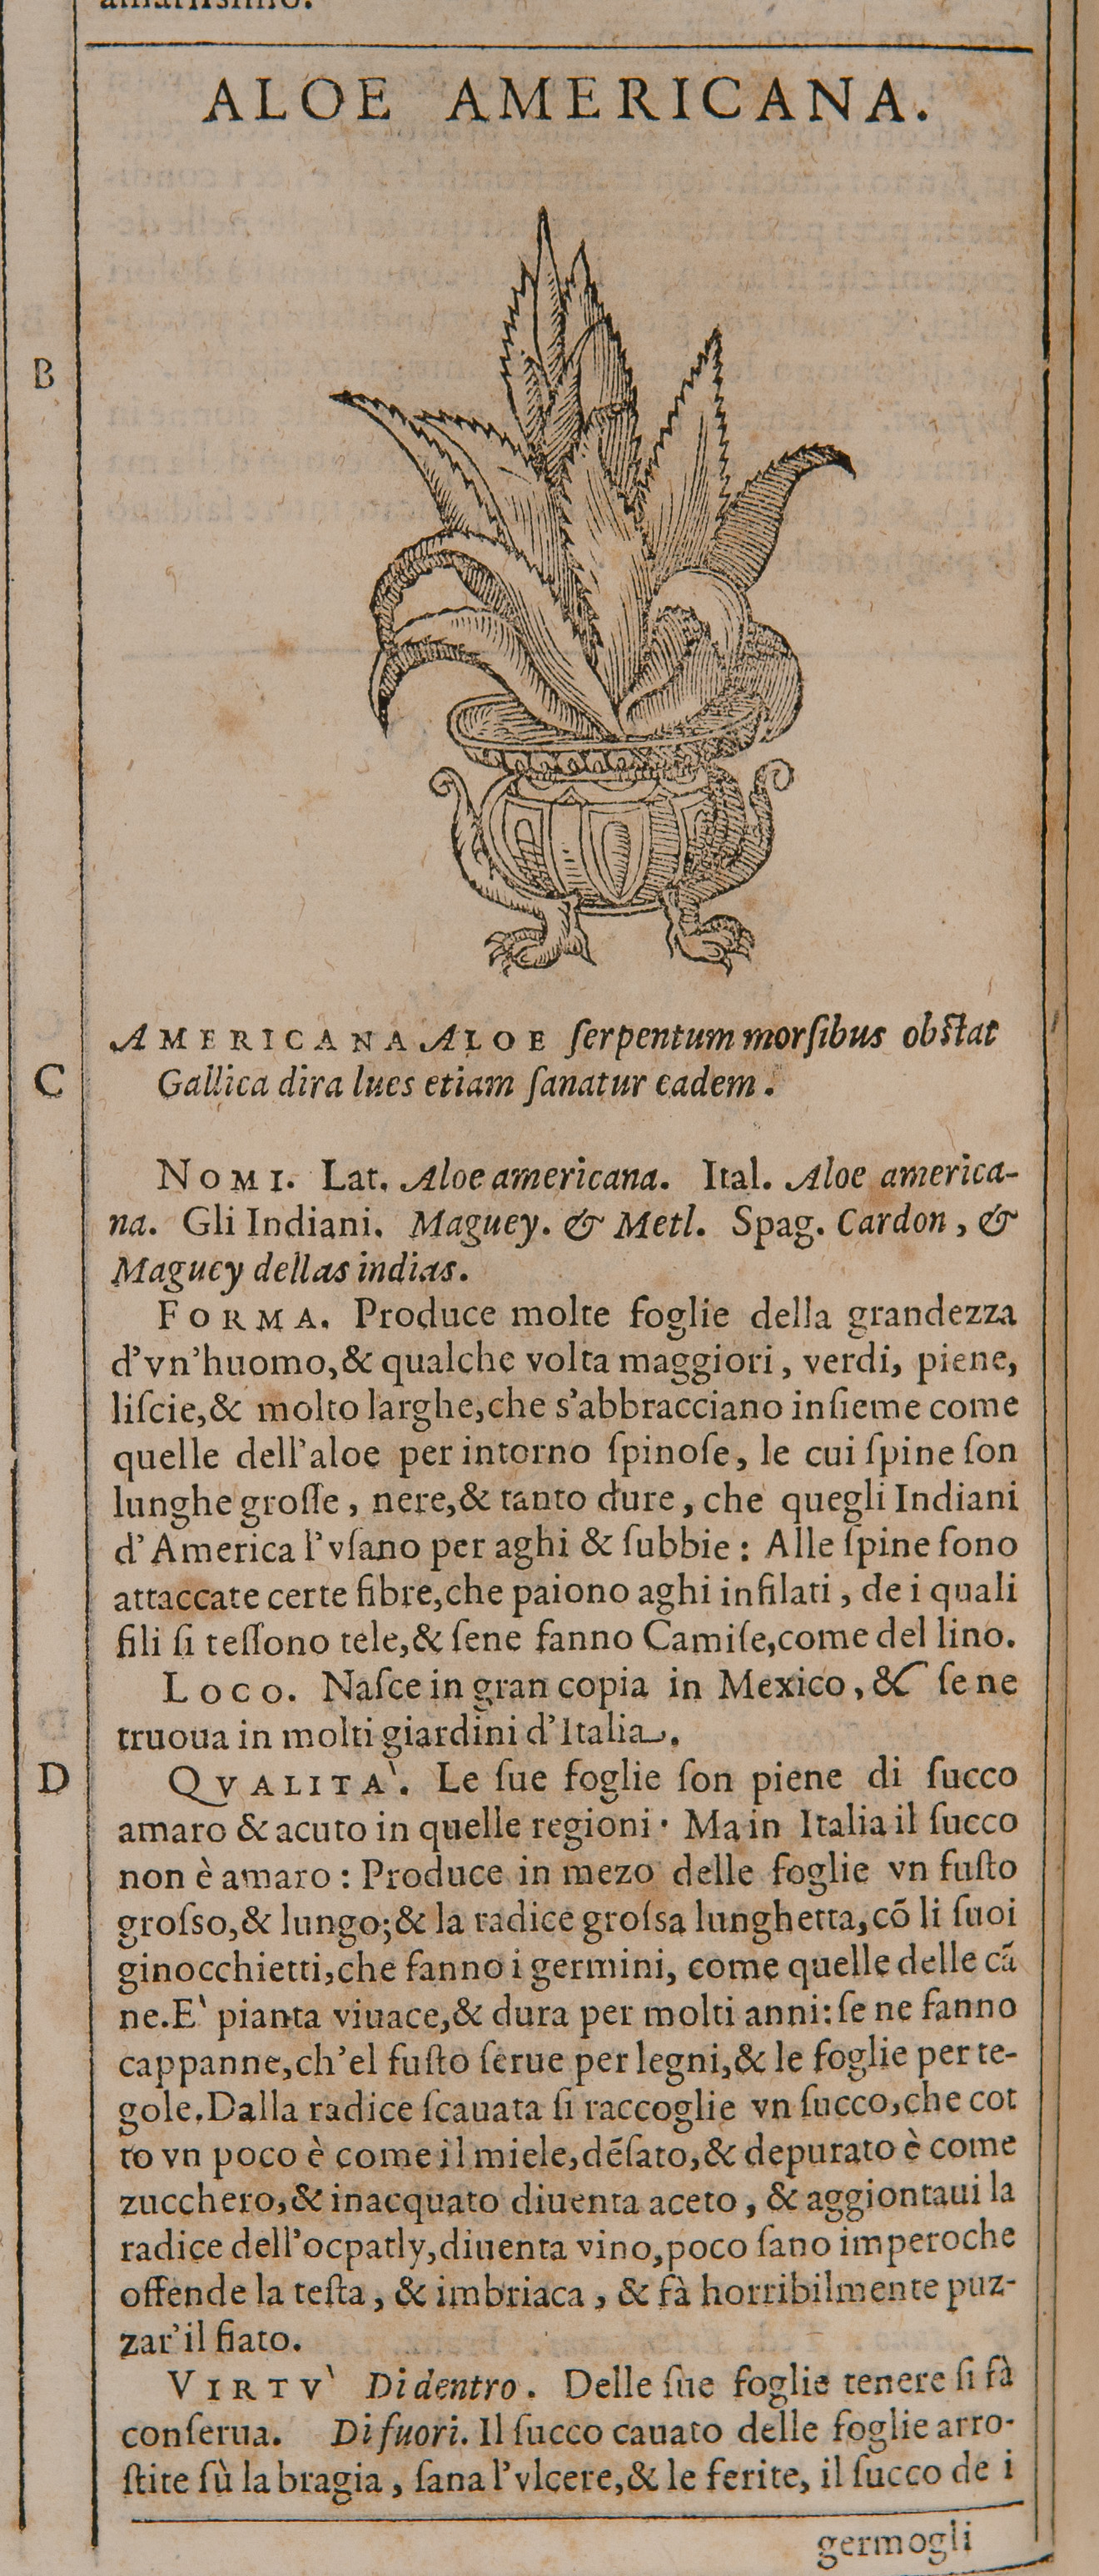 amarissimo.
ALOE AMERICANA.
B
AMERICANA ALOE ſerpentum morſibus obſtat
C
Gallica dira lues etiam ſanatur eadem.
NOMI. Lat. Aloe americana. Ital. Aloe america-
na. Gli Indiani. Maguey. & Metl. Spag. Cardon, &
Maguey dellas indias.
FORMA. Produce molte foglie della grandezza
d'vn'huomo,& qualche volta maggiori, verdi, piene,
liſcie,& molto larghe,che s'abbracciano inſieme come
quelle dell'aloe per intorno ſpinoſe, le cui ſpine ſon
lunghe groſſe, nere,& tanto dure, che quegli Indiani
d'America l'vſano per aghi & ſubbie: Alle ſpine ſono
attaccate certe fibre,che paiono aghi infilati, de i quali
fili ſi teſſono tele,& ſene fanno Camiſe,come del lino.
LOCO. Naſce in gran copia in Mexico, & ſe ne
truoua in molti giardini d'Italia.
D
QVALITA'. Le ſue foglie ſon piene di ſucco
amaro & acuto in quelle regioni. Ma in Italia il ſucco
non è amaro: Produce in mezo delle foglie vn fuſto
groſso,& lungo;& la radice groſsa lunghetta,cõ li ſuoi
ginocchietti,che fanno i germini, come quelle delle cã
ne.E' pianta viuace,& dura per molti anni:ſe ne fanno
cappanne,ch'el fuſto ſerue per legni,& le foglie per te-
gole.Dalla radice ſcauata ſi raccoglie vn ſucco,che cot
to vn poco è come il miele,dẽſato,& depurato è come
zucchero,& inacquato diuenta aceto, & aggiontaui la
radice dell'ocpatly,diuenta vino,poco ſano imperoche
offende la teſta, & imbriaca, & fà horribilmente puz-
zar'il fiato.
VIRTV' Di dentro. Delle ſue foglie tenere ſi fà
conſerua. Di fuori. Il ſucco cauato delle foglie arro-
ſtite ſù la bragia, ſana l'vlcere,& le ferite, il ſucco de i
germogli